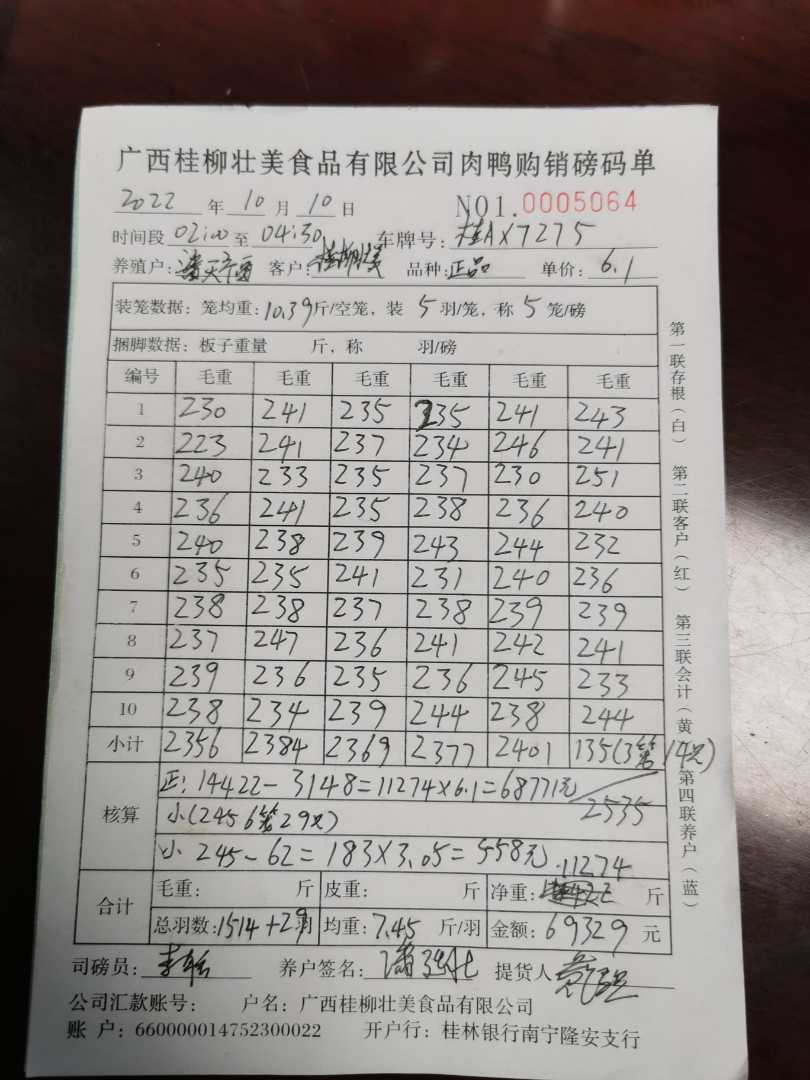 广西桂柳壮美食品有限公司肉鸭购销磅码单
2022 年 10 月 10 日 NO1.0005064
时间段 02:00 至 04:30 车牌号: 桂AX7275
养殖户: 客户: 品种: 正品 单价: 6.1
装笼数据: 笼均重: 10.39 斤/空笼, 装 5 羽/笼, 称 5 笼/磅
捆脚数据: 板子重量 斤, 称 羽/磅
编号 毛重 毛重 毛重 毛重 毛重 毛重
1 230 241 235 235 241 243
2 223 241 237 234 246 241
3 240 233 235 237 230 251
4 236 241 235 238 236 240
5 240 238 239 243 244 232
6 235 235 241 231 240 236
7 238 238 237 238 239 239
8 237 247 236 241 242 241
9 239 236 235 236 245 233
10 238 234 239 244 238 244
小计 2356 2384 2369 2377 2401 135(3第14只)
2535
核算
正: 14422-3148=11274×6.1=68771元
小(245 6第29只)
小 245-62=183×3.05=558元
合计
毛重: 斤 皮重: 斤 净重: 11274 斤
总羽数: 1514+29羽 均重: 7.45 斤/羽 金额: 69329 元
司磅员: 养户签名: 提货人
公司汇款账号: 户名: 广西桂柳壮美食品有限公司
账户: 660000014752300022 开户行: 桂林银行南宁隆安支行
第一联存根(白) 第二联客户(红) 第三联会计(黄 第四联养户(蓝)